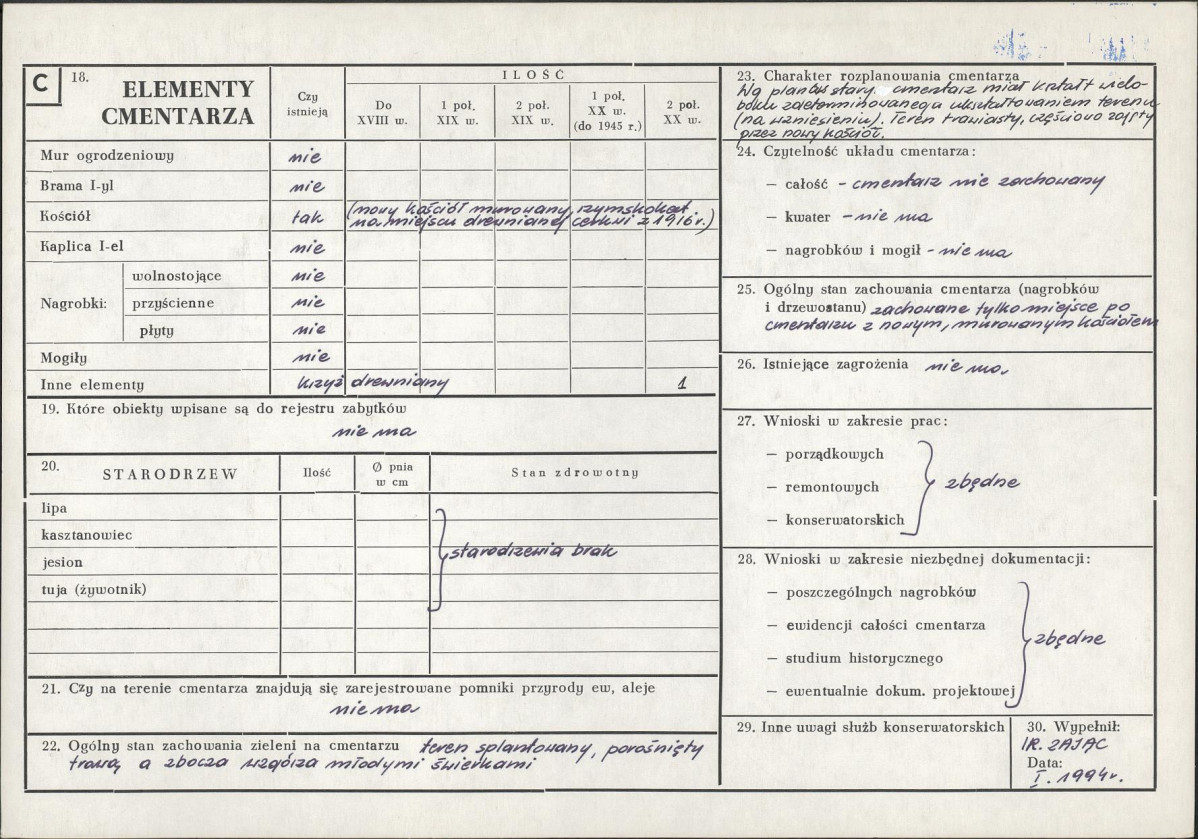 C
18.
ELEMENTY
CMENTARZA
Czy
istnieją
ILOŚĆ
Do
XVIII w.
1 poł.
XIX w.
2 poł.
XIX w.
1 poł.
XX w.
(do 1945 r.)
2 poł.
XX w.
Mur ogrodzeniowy nie
Brama I-yl nie
Kościół tak (nowy kościół murowany, rzymskokat
na miejscu drewnianej cerkwi z 1916 r.)
Kaplica I-el nie
Nagrobki:
wolnostojące nie
przyścienne nie
płyty nie
Mogiły nie
Inne elementy krzyż drewniany 1
19. Które obiekty wpisane są do rejestru zabytków
nie ma
20.
STARODRZEW
Ilość
Ø pnia
w cm
Stan zdrowotny
lipa
kasztanowiec
jesion
tuja (żywotnik)
starodrzewia brak
21. Czy na terenie cmentarza znajdują się zarejestrowane pomniki przyrody ew, aleje
nie ma
22. Ogólny stan zachowania zieleni na cmentarzu teren splantowany, porośnięty
trawą, a zbocza wzgórza młodymi świerkami
23. Charakter rozplanowania cmentarza
Wg planów stary cmentarz miał kształt wielo-
boku zdeterminowanego ukształtowaniem terenu
(na wzniesieniu). Teren trawiasty, częściowo zajęty
przez nowy kościół.
24. Czytelność układu cmentarza:
– całość - cmentarz nie zachowany
– kwater - nie ma
– nagrobków i mogił - nie ma
25. Ogólny stan zachowania cmentarza (nagrobków
i drzewostanu) zachowane tylko miejsce po
cmentarzu z nowym, murowanym kościołem
26. Istniejące zagrożenia nie ma
27. Wnioski w zakresie prac:
– porządkowych
– remontowych
– konserwatorskich
zbędne
28. Wnioski w zakresie niezbędnej dokumentacji:
– poszczególnych nagrobków
– ewidencji całości cmentarza
– studium historycznego
– ewentualnie dokum. projektowej
zbędne
29. Inne uwagi służb konserwatorskich
30. Wypełnił:
R. ZAJĄC
Data:
I. 1994r.